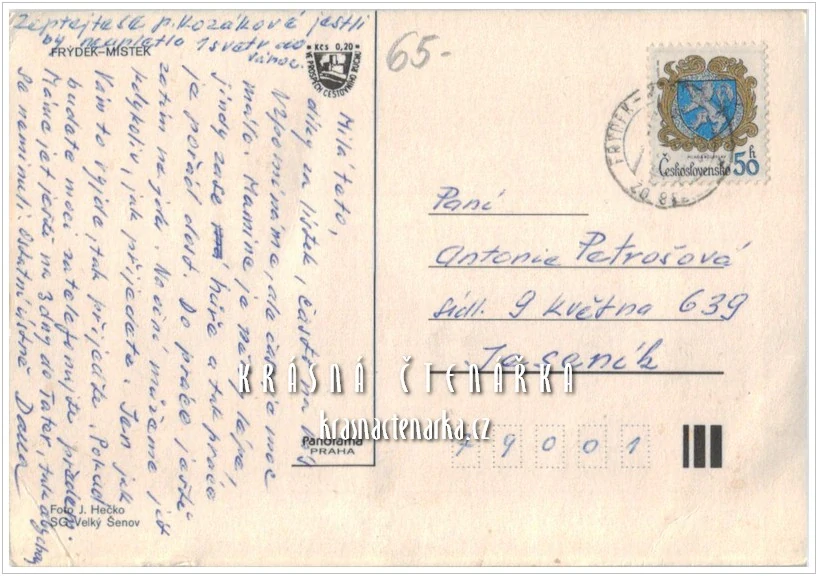 Zeptejte se p. Kozákové jestli
by neupletla 1 svetr do
vánoc.
FRÝDEK-MÍSTEK
Kčs 0,20
VE PROSPĚCH CESTOVNÍHO RUCHU
65.-
Milá teto,
díky za lístek, často na Vás
vzpomínáme, ale času je moc
málo. Mamince je někdy lépe,
jindy zase hůře a tak práce
je pořád dost. Do práce ještě
zatím nejde. Na víně můžeme jít
kdykoliv, jak přijedete. Jen jak
Vám to vyjde, tak přijeďte. Pokud
budete moci zatelefonujte předem.
Máme jet ještě na 3 dny do Tater, tak abychom
se neminuli. Ostatní ústně Dana
Foto J. Hečko
SG Velký Šenov
Panorama
PRAHA
Československo 50 h
FRÝDEK-
Paní
Antonie Petrošová
sídl. 9 května 639
Jeseník
79001
KRÁSNÁ ČTENÁŘKA
krasnactenarka.cz